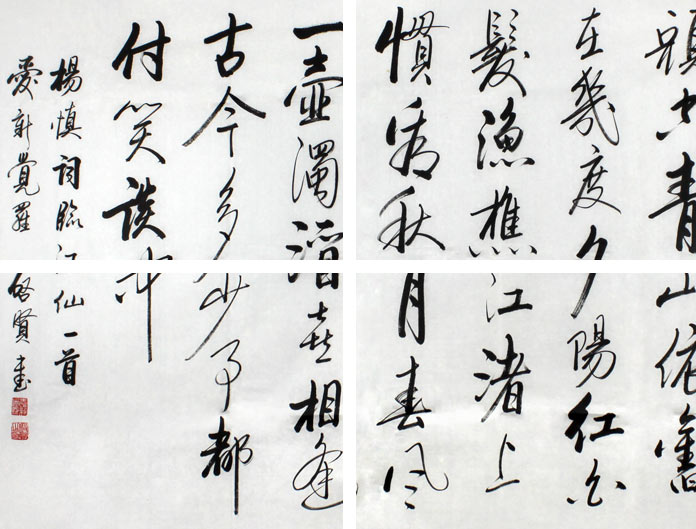 頭空青山依舊
在幾度夕陽紅白
髮漁樵江渚上
慣看秋月春風
一壺濁酒喜相逢
古今多少事都
付笑談中
楊慎詞臨江仙一首
愛新覺羅啓賢書